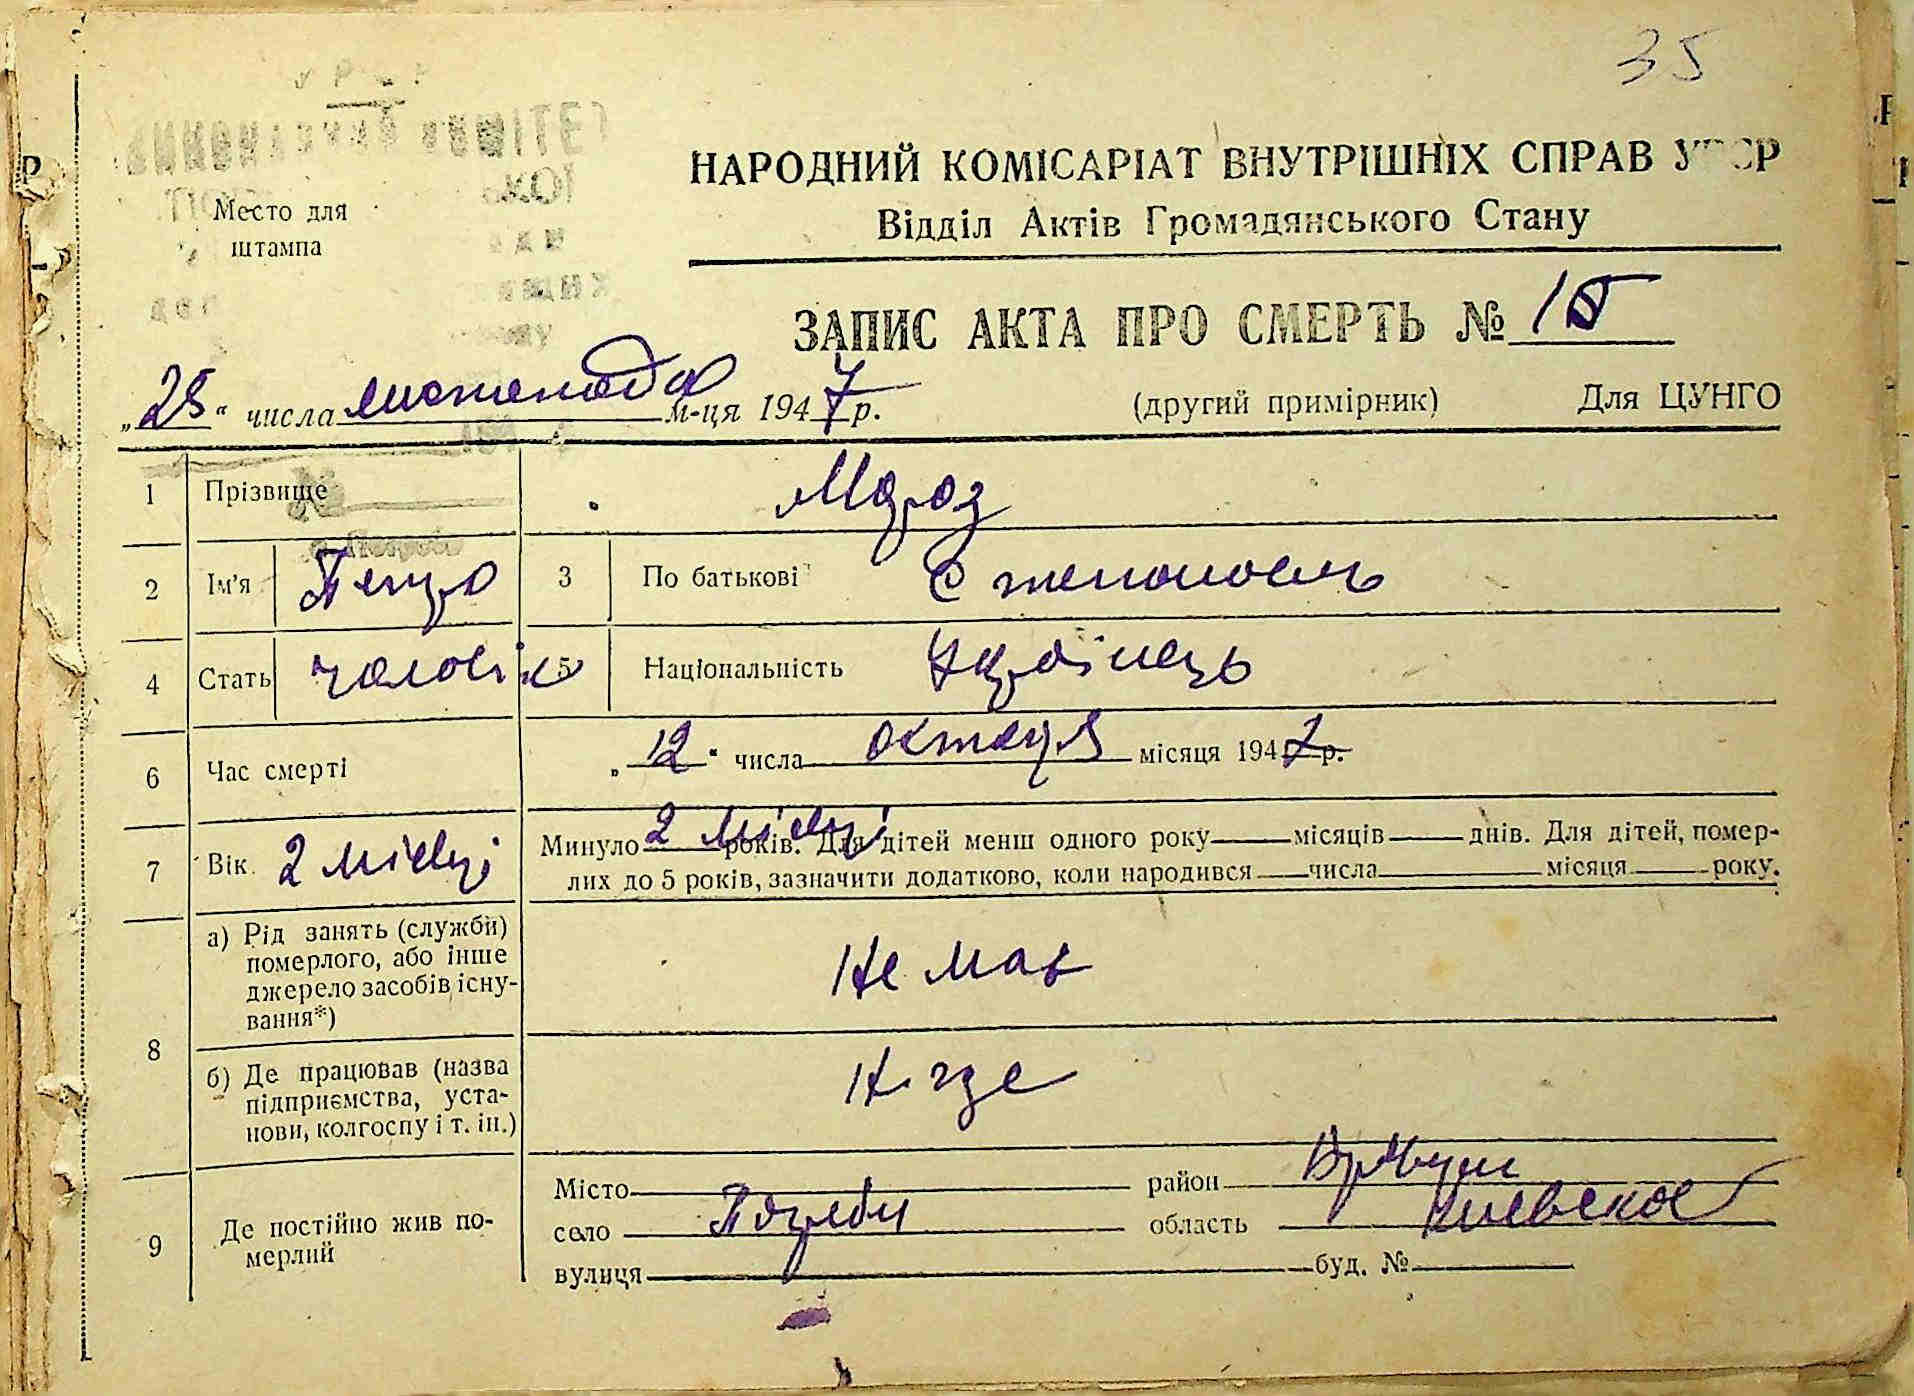 35
НАРОДНИЙ КОМІСАРІАТ ВНУТРІШНІХ СПРАВ УРСР
Відділ Актів Громадянського Стану
Место для
штампа
ЗАПИС АКТА ПРО СМЕРТЬ №
"25" числа листопада м-ця 1947 р.
(другий примірник) Для ЦУНГО
1 Прізвище Мороз
2 Ім'я Петро 3 По батькові Степанович
4 Стать чоловік 5 Національність Українець
6 Час смерті "12" числа октября місяця 1947 р.
7 Вік 2 місяці Минуло 2 місяці років. Для дітей менш одного року місяців днів. Для дітей, помер-
лих до 5 років, зазначити додатково, коли народився числа місяця року.
8 а) Рід занять (служби) померлого, або інше джерело засобів існу-вання*) Не мав
б) Де працював (назва підприємства, уста-нови, колгоспу і т. ін.) Нигде
9 Де постійно жив по-мерлий
Місто район
село Погреби область Киевская
вулиця буд. №